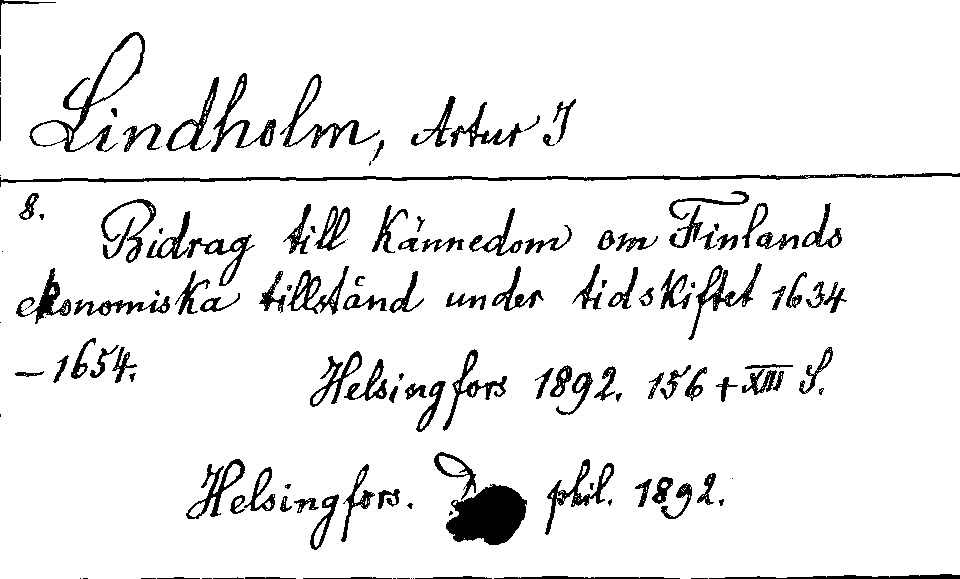 Lindholm, Artur I
8. Bidrag till kännedom om Finlands
ekonomiska tillstånd under tidskiftet 1634
– 1654.
Helsingfors 1892. 156 + XIII S.
Helsingfors. phil. 1892.